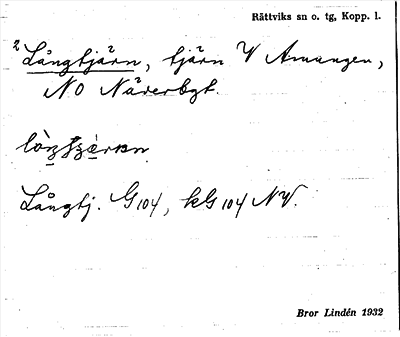 Rättviks sn o. tg, Kopp. l.
2 Långtjärn, tjärn V Amungen,
NO Näverbgt.
Långtj. G104, kG104 NV.
Bror Lindén 1932